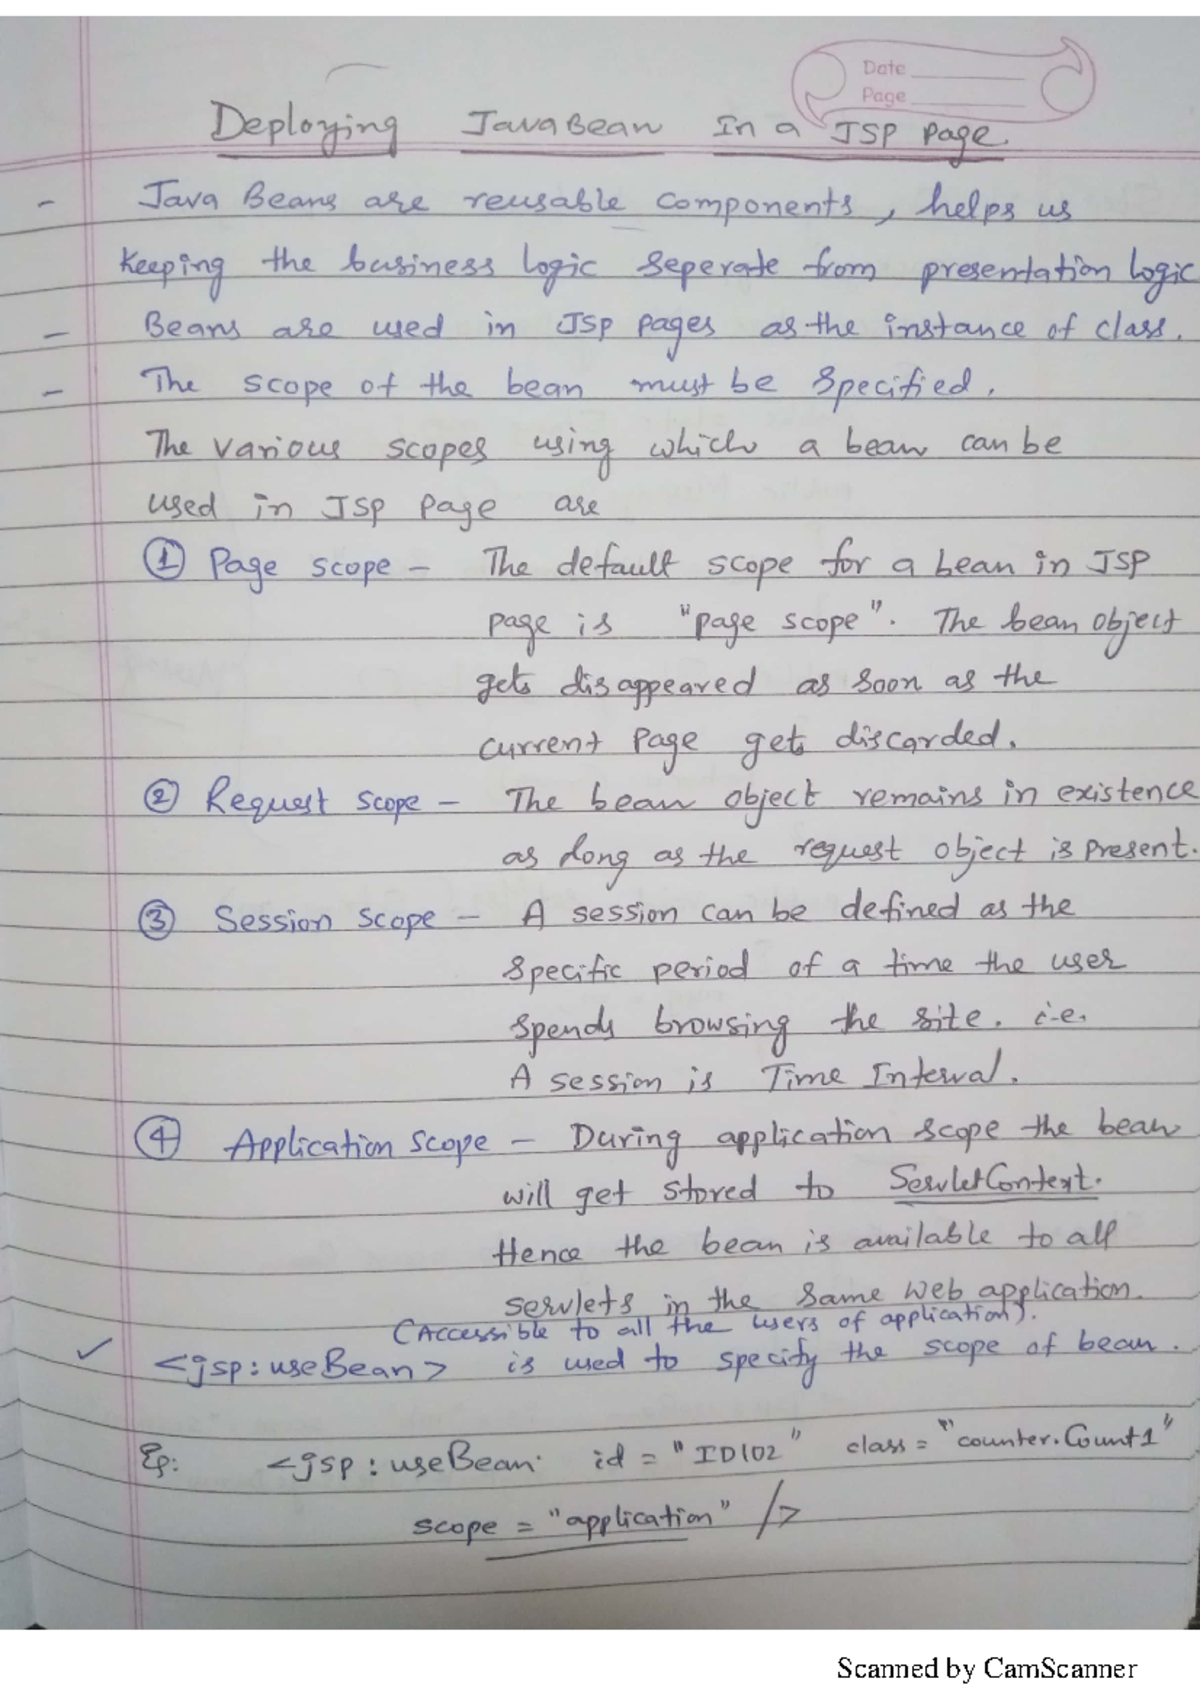 Date
Page
Deploying JavaBean In a JSP Page.
- Java Beans are reusable components, helps us
keeping the business logic seperate from presentation logic
- Beans are used in JSP pages as the instance of class.
- The scope of the bean must be specified.
The various scopes using which a bean can be
used in JSP page are
① Page scope - The default scope for a bean in JSP
page is "page scope". The bean object
gets disappeared as soon as the
current page gets discarded.
② Request scope - The bean object remains in existence
as long as the request object is present.
③ Session scope - A session can be defined as the
specific period of a time the user
spends browsing the site. i.e.
A session is Time Interval.
④ Application scope - During application scope the bean
will get stored to ServletContext.
Hence the bean is available to all
servlets in the same web application.
(Accessible to all the users of application).
✓ <jsp:useBean> is used to specify the scope of bean.
Eg: <jsp:useBean id = "ID102" class = "counter.Count1"
scope = "application" />
Scanned by CamScanner